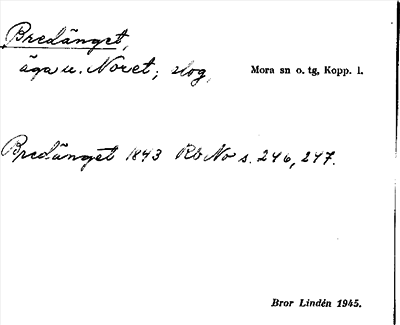 Bredänget,
äga u. Noret; skog, Mora sn o. tg, Kopp. l.
Bredänget 1843 Rb No s. 246, 247.
Bror Lindén 1945.